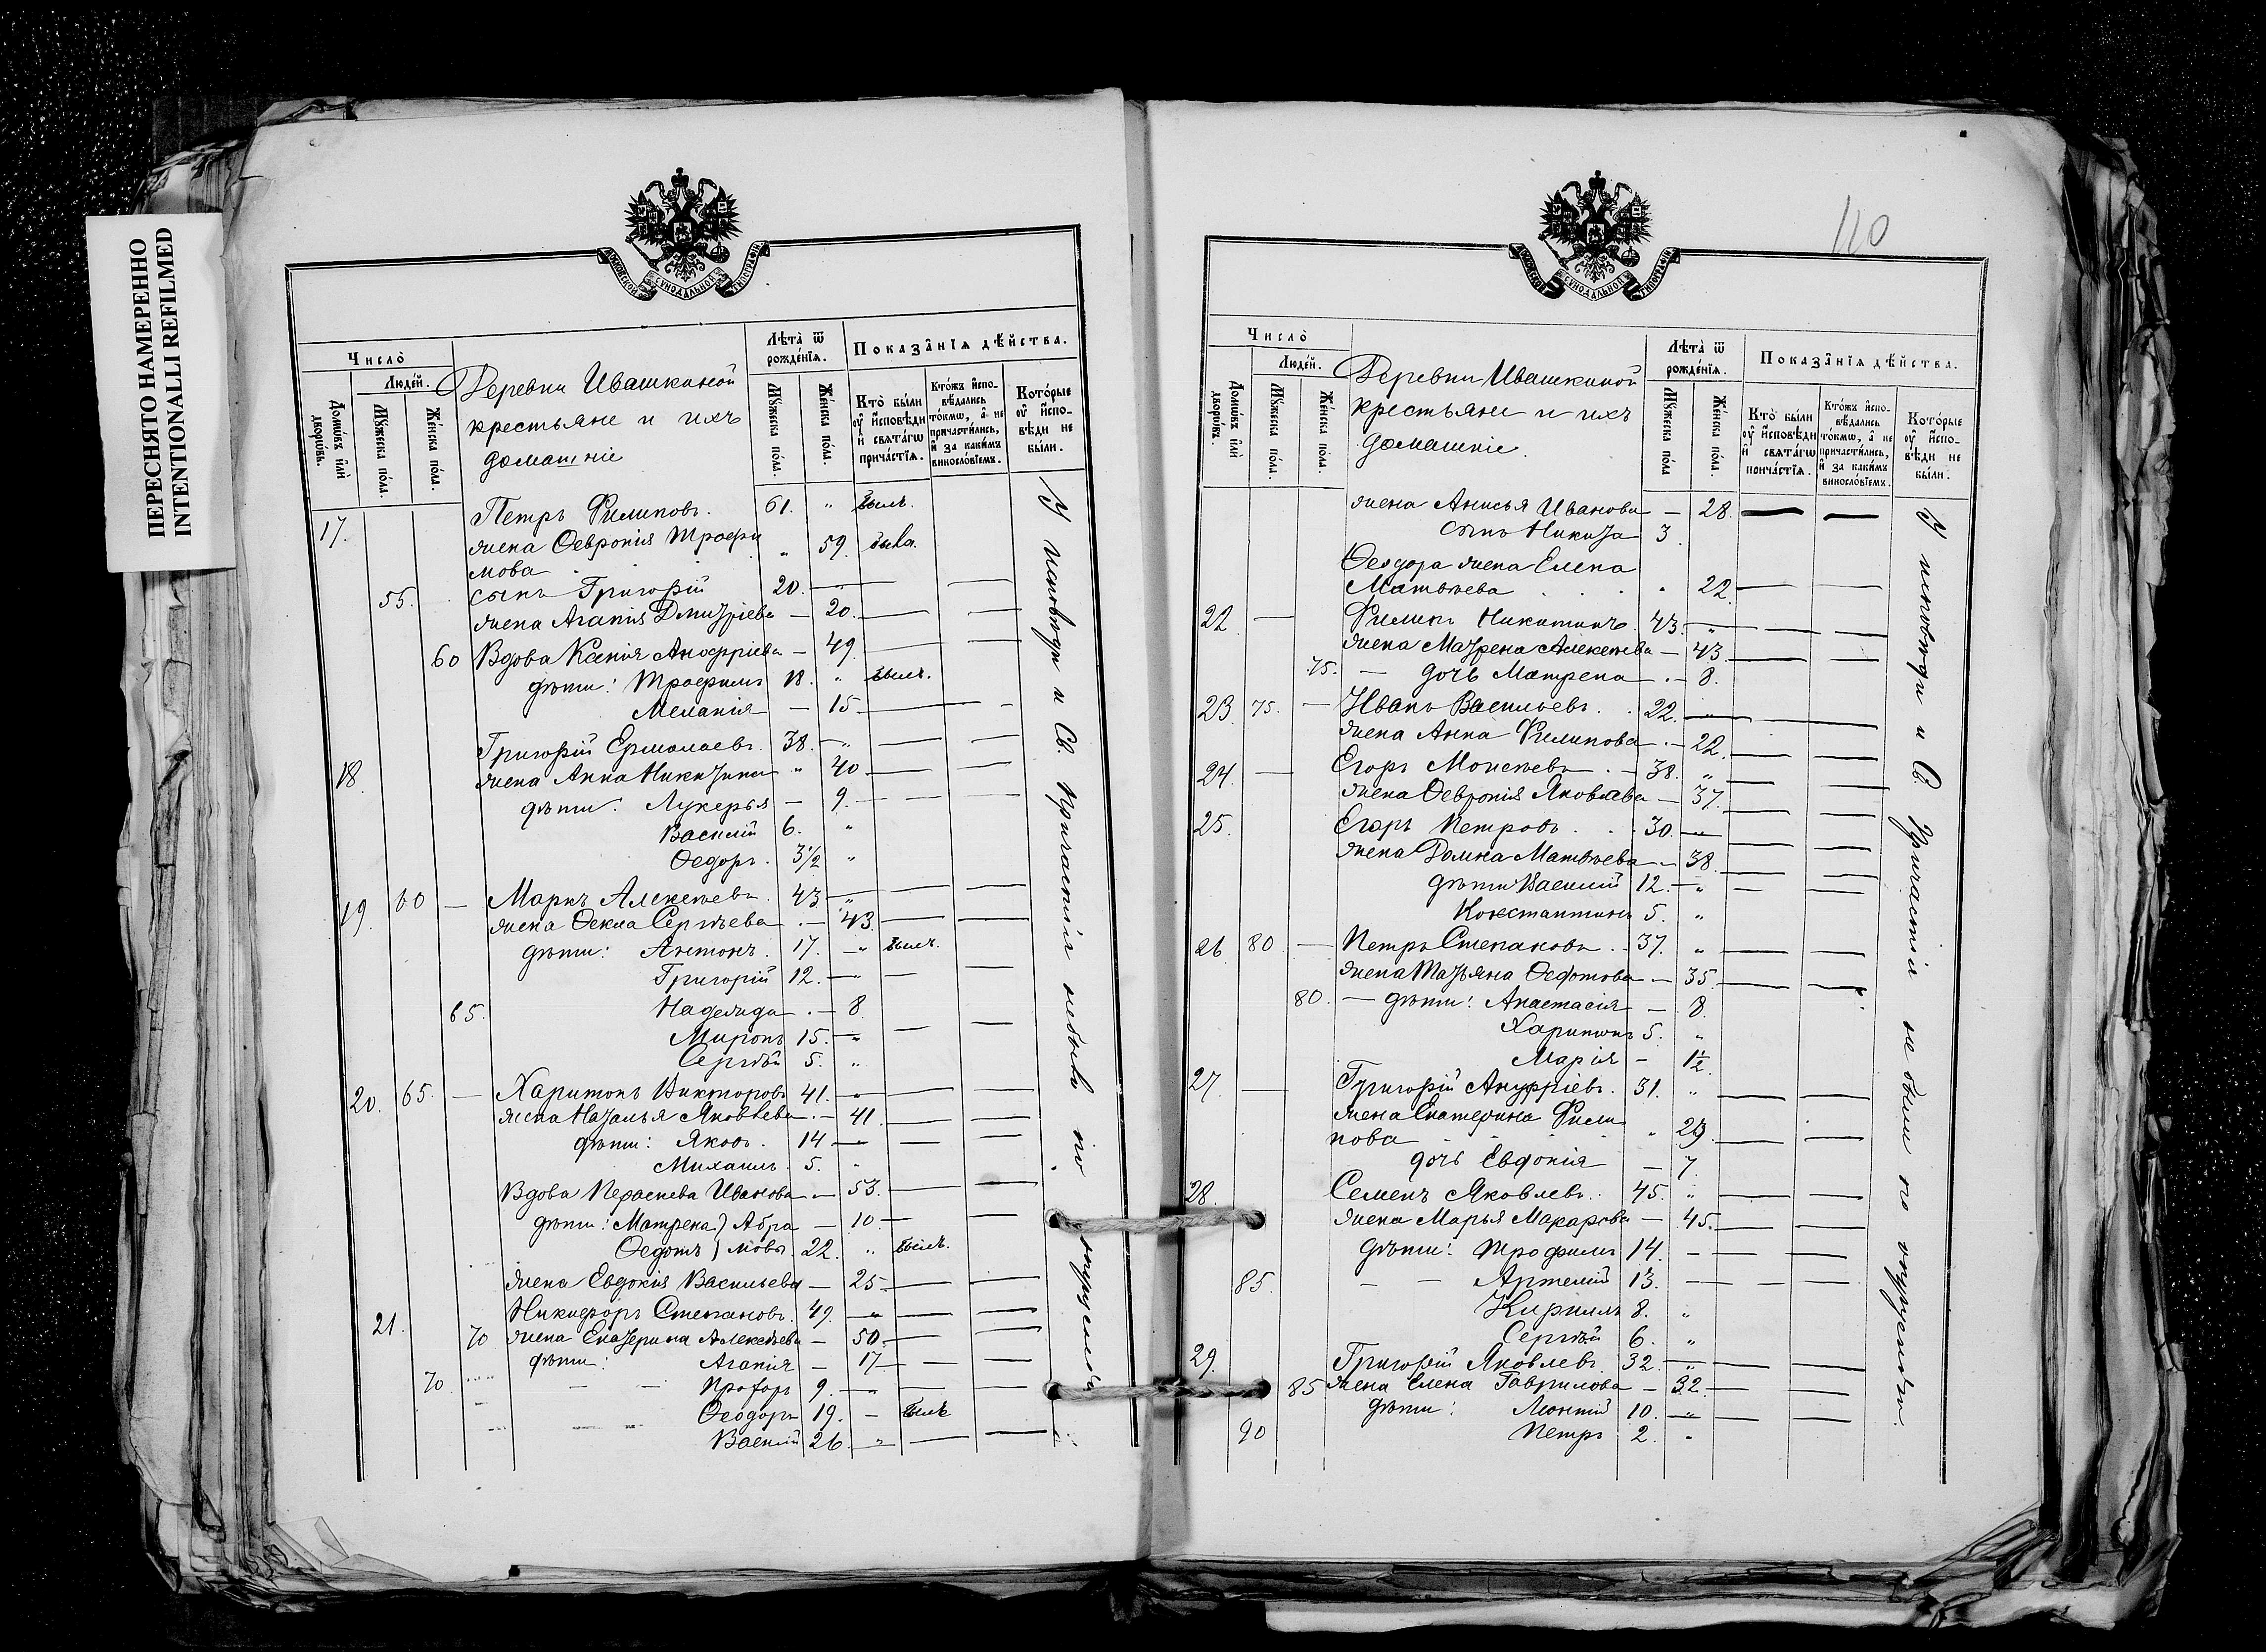 ПЕРЕСНЯТО НАМЕРЕННО
INTENTIONALLI REFILMED
МОСКОВСКОЙ СѴНОДАЛЬНОЙ ТИПОГРАФІИ
Число̀
Людей.
Домѡвъ и҆лѝ дворѡвъ.
Мꙋжеска по́ла.
Же́нска по́ла.
Деревни Ивашкиной
крестьяне и ихъ
домашніе
Лѣта̀ ѿ рожде́нїѧ.
Мꙋжеска по́ла.
Же́нска по́ла.
Показа̑нїѧ дѣ́йства.
Кто̀ бы́ли оу҆ и҆сповѣди и҆ свѧта́гѡ прича́стїѧ.
Кто́жъ и҆спо-вѣ́дались то́кмѡ, а҆ не причасти́лись, и҆ за каки́мъ винослѡ́вїемъ.
Кото́рые оу҆ и҆спо-вѣди не бы́ли.
17. Петръ Филиповъ. 61. " былъ.
жена Ѳевронія Трофи " 59. была.
мова
55. сынъ Григорій 20. — "
жена Агапія Дмитріева — 20. —
60 Вдова Ксенія Аноѳріева — 49. —
дѣти: Трофимъ 18. " былъ.
Меланія — 15 —
18. Григорій Ермолаевъ. 38. — "
жена Анна Никитина " 40 —
дѣти: Лукерья — 9. —
Василій 6. "
Ѳедоръ. 3½ "
19. 60 — Маркъ Алексѣевъ. 43 — "
жена Ѳекла Сергѣева . — 43. —
дѣти: Антонъ. 17. — " былъ.
Григорій 12. — " —
65. Надежда . — 8.
Миронъ 15. — " —
Сергѣй 5. "
20. 65. — Харитонъ Викторовъ 41. — "
жена Наталья Яковлева . — 41. —
дѣти: Яковъ. 14 — " —
Михаилъ. 5. "
Вдова Параскева Иванова — 53. —
дѣти: Матрена) Абра — 10. —
Ѳедотъ) мовы 22. " былъ.
жена Евдокія Васильева — 25 —
21. Никифоръ Степановъ. 49. — "
70 жена Екатерина Алексѣева — 50. —
дѣти: Агапія — 17 —
70 — — Прохоръ 9. — "
Ѳеодоръ 19. — былъ
Василій 26. — "
У исповѣди и Св. Причастія небыло по опущенію
110
МОСКОВСКОЙ СѴНОДАЛЬНОЙ ТИПОГРАФІИ
Число̀
Людей.
Домѡвъ и҆лѝ дворѡвъ.
Мꙋжеска по́ла.
Же́нска по́ла.
Деревни Ивашкиной
крестьяне и ихъ
домашніе.
Лѣта̀ ѿ рожде́нїѧ.
Мꙋжеска по́ла
Же́нска по́ла.
Показа̑нїѧ дѣ́йства.
Кто̀ бы́ли оу҆ и҆сповѣди и҆ свѧта́гѡ прича́стїѧ.
Кто́жъ и҆спо-вѣ́дались то́кмѡ, а҆ не причасти́лись, и҆ за каки́мъ винослѡ́вїемъ.
Кото́рые оу҆ и҆спо-вѣди не бы́ли.
жена Анисья Иванова — 28. —
сынъ Никита 3.
Ѳеодора жена Елена
Матвѣева . . . " 22. —
22. — Филипъ Никитинъ. 43. — "
жена Матрена Алексѣева — 43. —
75. — дочь Матрена . — 8.
23. 75. — Иванъ Васильевъ. . 22. — "
жена Анна Филипова . — 22. —
24. — Егоръ Моисѣевъ . — 38. "
жена Ѳевронія Яковлева — 37. —
25. Егоръ Петровъ . . . 30. — "
жена Домна Матвѣева . — 38. —
дѣти Василій 12. — "
Константинъ 5. "
26 80. — Петръ Степановъ . — 37. "
жена Татьяна Ѳедотова — 35. —
80. — дѣти: Анастасія — 8.
Харитонъ 5. "
Марія — 1½
27. — Григорій Ануфріевъ. 31. "
жена Екатерина Фили
пова . . . " 29. —
дочь Евдокія — 7.
28. Семенъ Яковлевъ. 45. "
жена Марья Макарова — 45. —
дѣти: Трофимъ 14. — —
85. — — Артемій 13. — —
Кириллъ 8. "
Сергѣй 6. "
29. Григорій Яковлевъ. 32. — "
85 жена Елена Гаврилова — 32. —
дѣти: Леонтій 10. — "
90 Петръ 2. "
У исповѣди и Св. Причастія не были по опущенію.